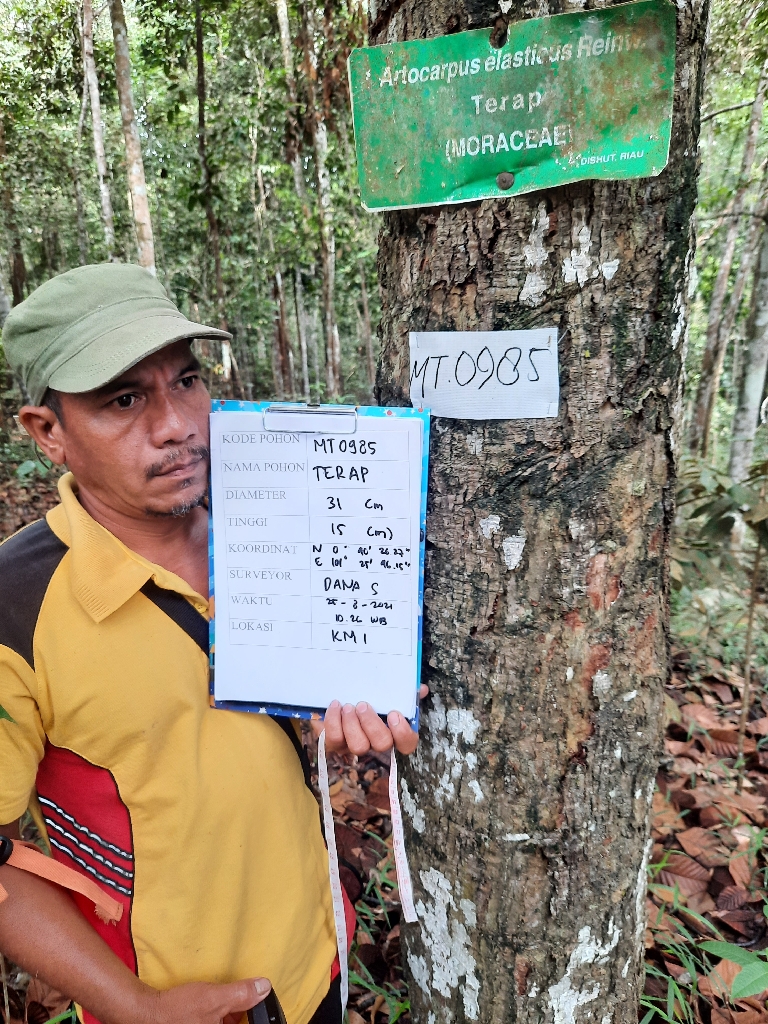 Artocarpus elasticus Reinw
Terap
(MORACEAE)
DISHUT. RIAU
MT.0985
KODE POHON MT0985
NAMA POHON TERAP
DIAMETER 31 Cm
TINGGI 15 (m)
KOORDINAT N 0° 40' 26.27"
E 101° 25' 46.15"
SURVEYOR DANA S
WAKTU 25-8-2021
10.26 WIB
LOKASI KM 1